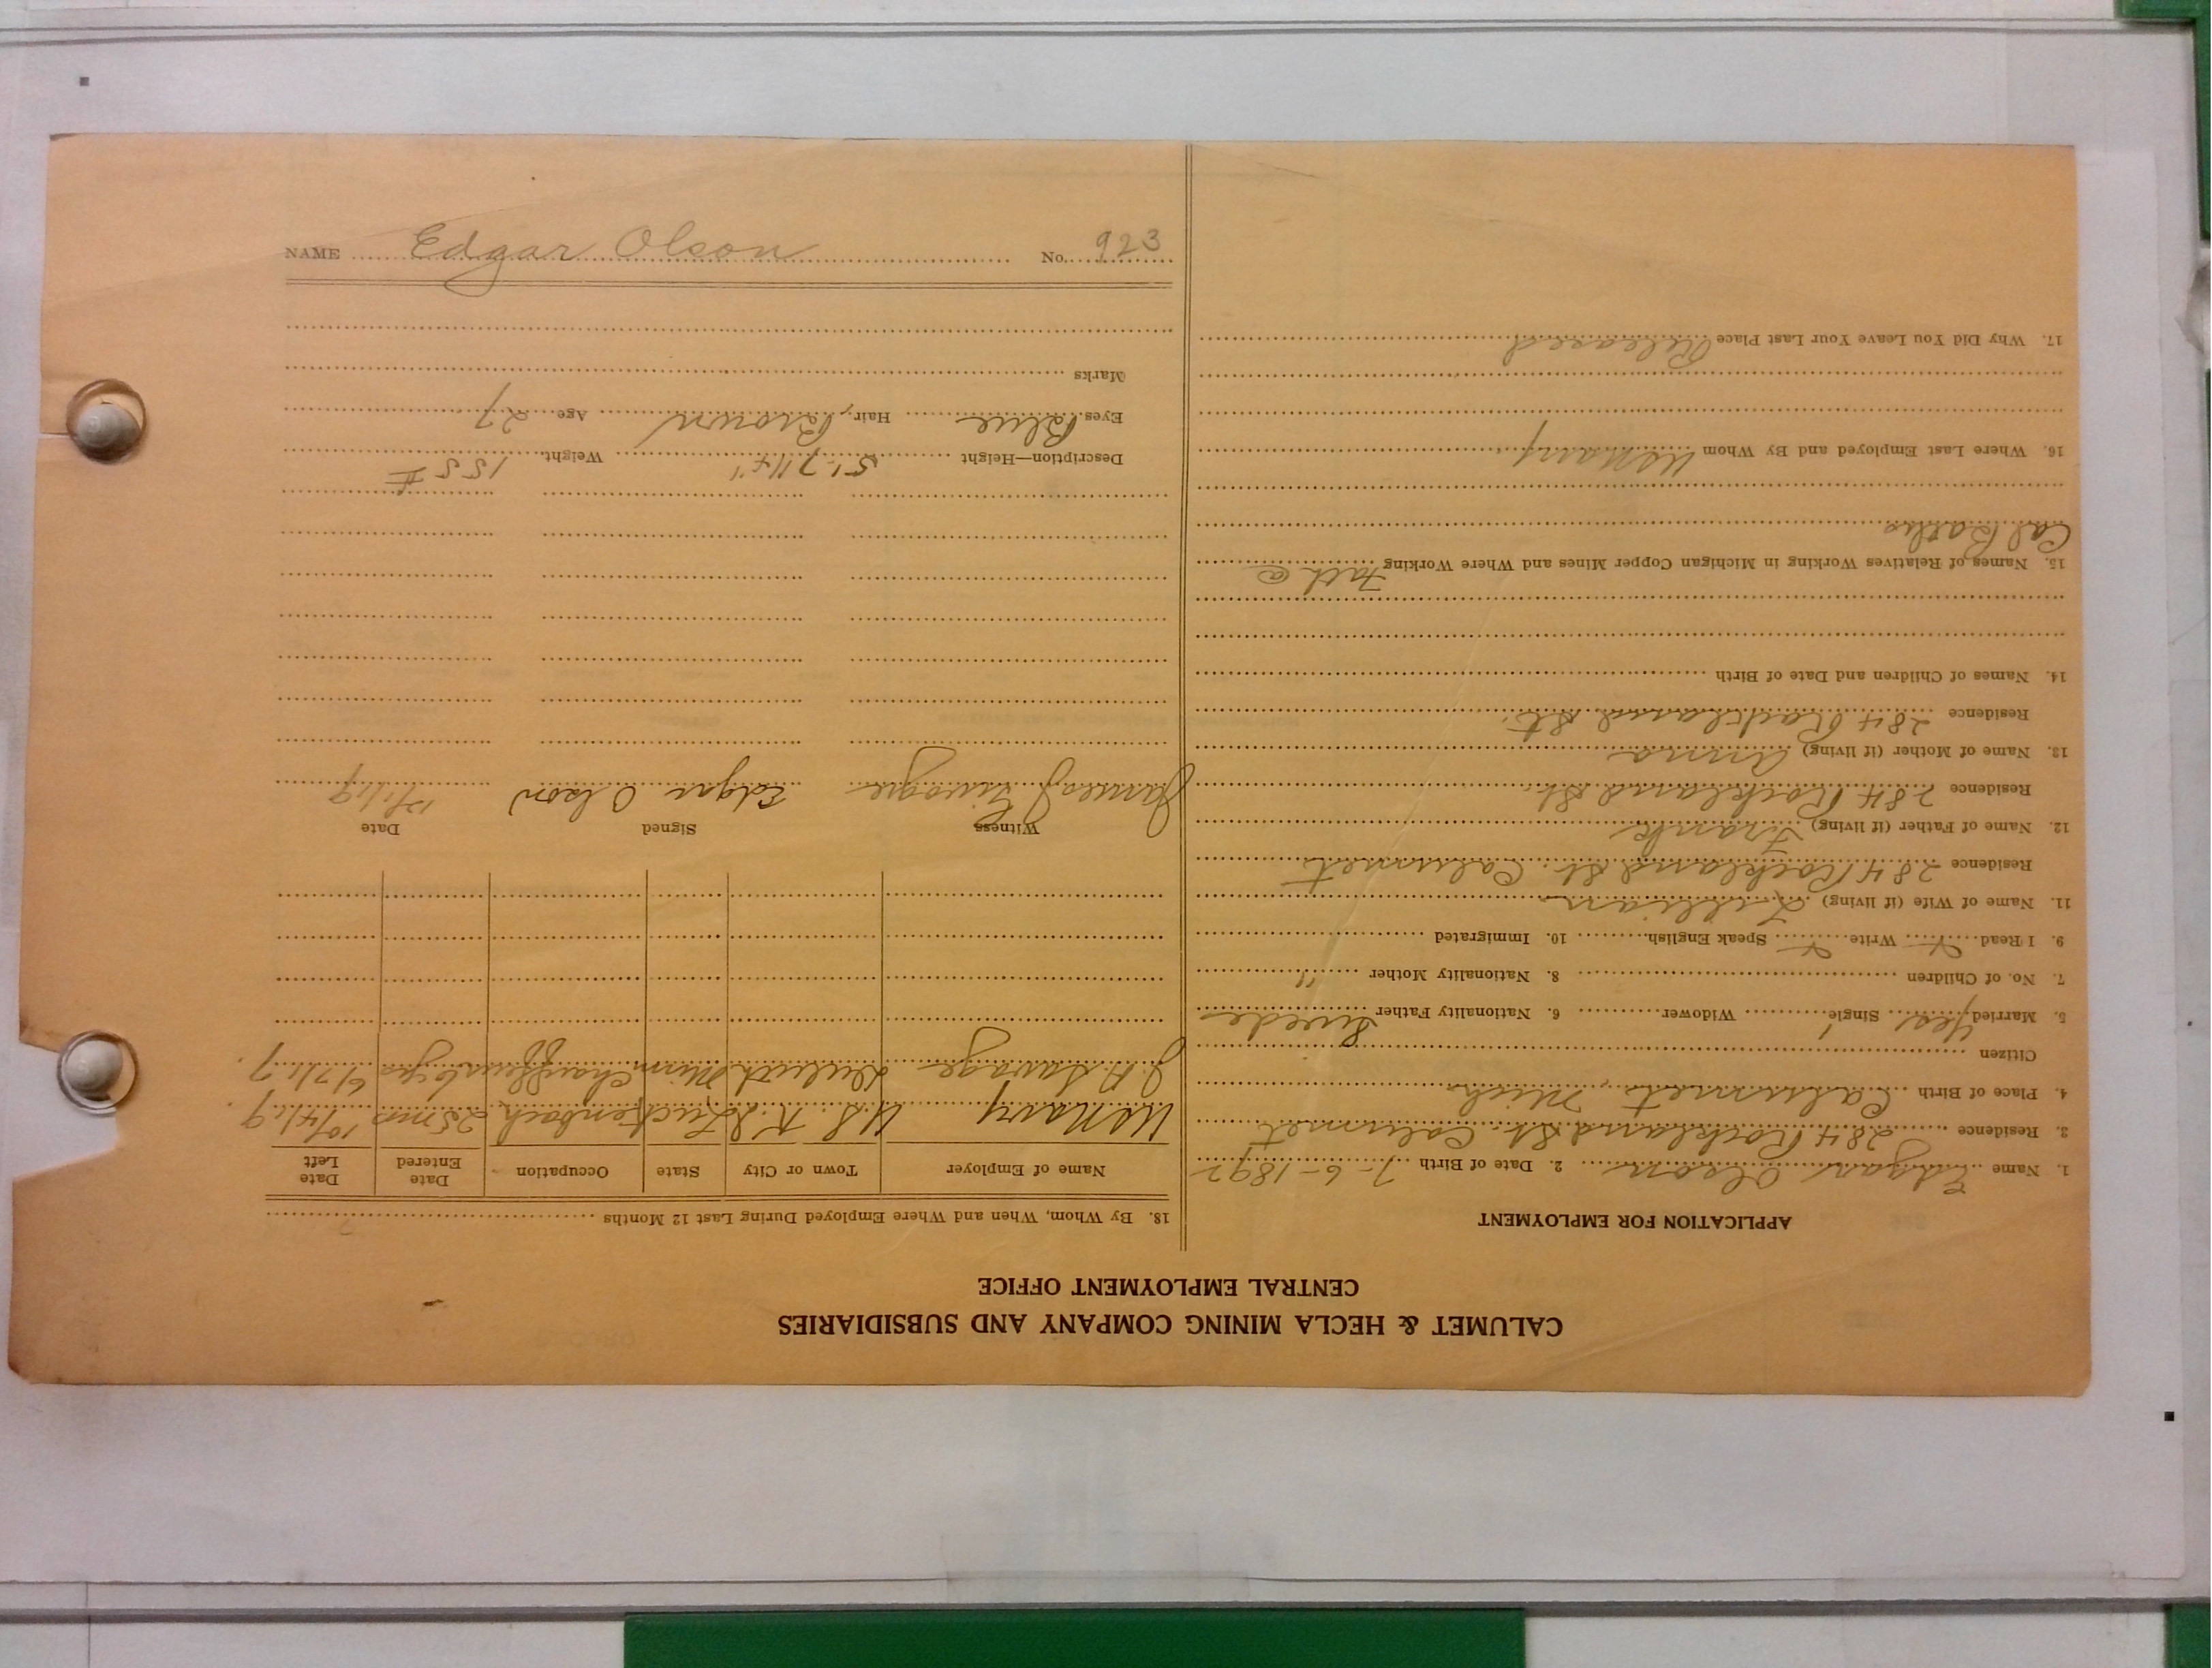 CALUMET & HECLA MINING COMPANY AND SUBSIDIARIES
CENTRAL EMPLOYMENT OFFICE
APPLICATION FOR EMPLOYMENT
1. Name Edgar Olson 2. Date of Birth 7-6-1892
3. Residence 284 Rockland St. Calumet
4. Place of Birth Calumet, Mich
Citizen
5. Married Yes Single Widower 6. Nationality Father Swede
7. No. of Children 8. Nationality Mother "
9. I Read Write Speak English 10. Immigrated
11. Name of Wife (if living) Lillian
Residence 284 Rockland St. Calumet
12. Name of Father (if living) Frank
Residence 284 Rockland St.
13. Name of Mother (if living) Anna
Residence 284 Rockland St.
14. Names of Children and Date of Birth
15. Names of Relatives Working in Michigan Copper Mines and Where Working Fath @
Cal
16. Where Last Employed and By Whom US Navy
17. Why Did You Leave Your Last Place Released
18. By Whom, When and Where Employed During Last 12 Months
Name of Employer Town or City State Occupation Date Entered Date Left
US Navy U.S. K.I. Luckenbach 25 mo
J.P. Savage Duluth Minn Chauffeur 6/7/17
Witness Signed Date
James J Edgar Olson
Description—Height 5'-7 1/4" Weight 155 #
Eyes Blue Hair, Brown Age 27
Marks
NAME Edgar Olson No. 923